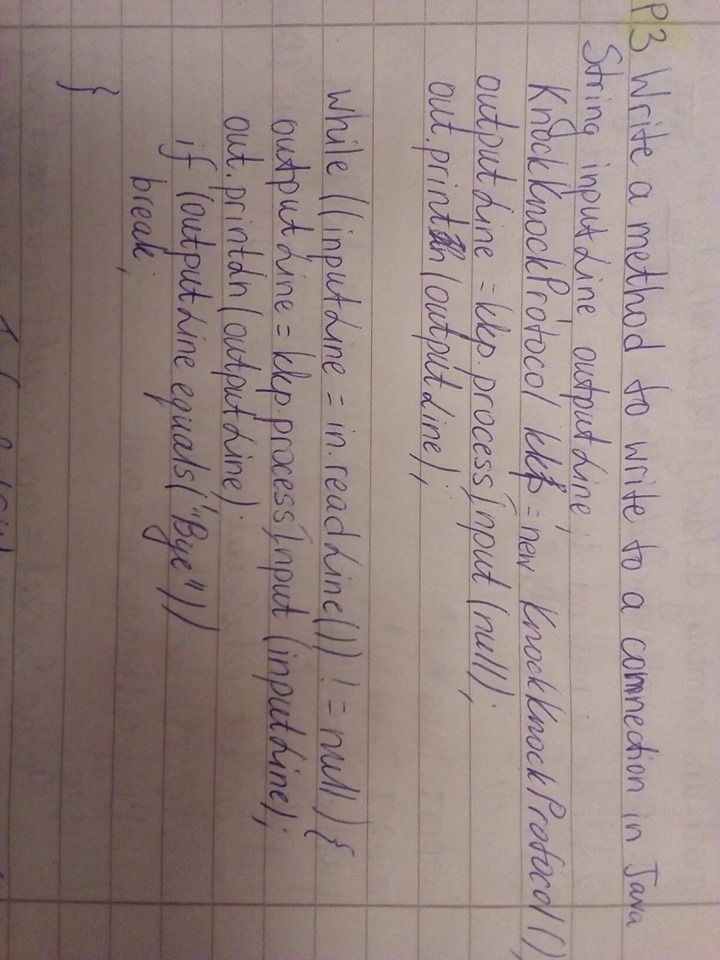 P3 Write a method to write to a connection in Java
String inputLine, outputLine;
KnockKnockProtocol kkp = new KnockKnockProtocol();
outputLine = kkp.processInput (null);
out.println (outputLine);
while ((inputLine = in.readLine()) != null) {
outputLine = kkp.processInput (inputLine);
out.println (outputLine);
if (outputLine equals("Bye"))
break;
}